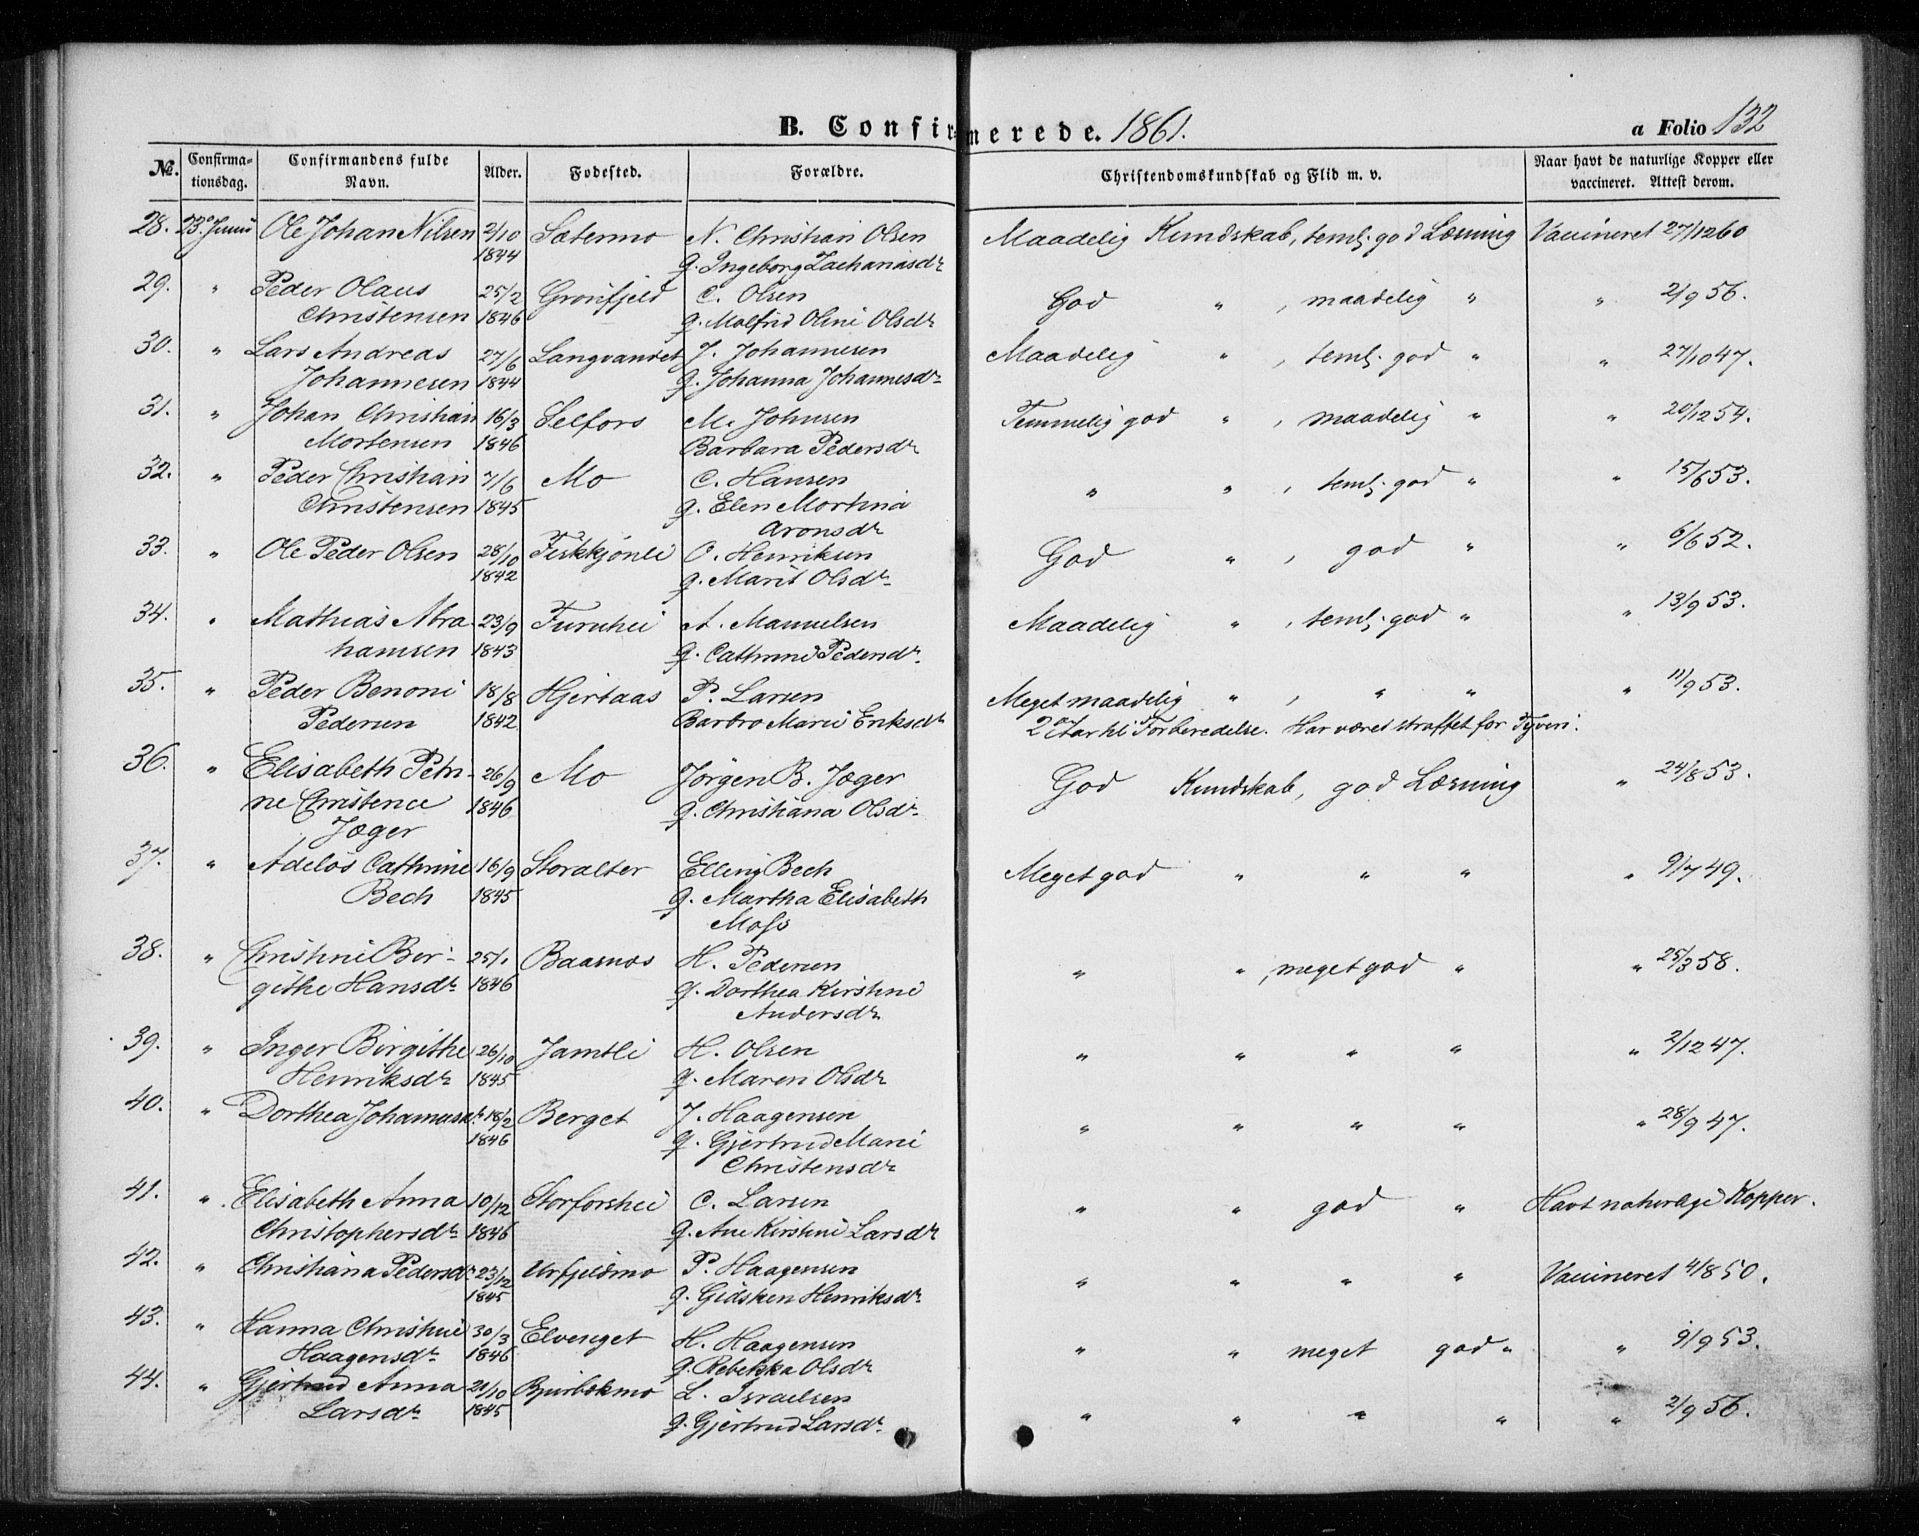 B. Confirmerede. 1861. a Folio 132
No. Confirmationsdag. Confirmandens fulde Navn. Alder. Fødested. Forældre. Christendomskundskab og Flid m. v. Naar havt de naturlige Kopper eller vaccineret. Attest derom.
28. 23. Juni Ole Johan Nilsen 2/10 Sætermo N. Christian Olsen Maadelig Kundskab, teml. god Læsning Vaccineret 27/12 60
1844 q. Ingeborg Zachariasdr
29. " Peder Olaus 25/2 Grønfjeld C. Olsen God " , maadelig " " 2/9 56.
Christensen 1846 q. Malfrid Oline Olsdr
30. " Lars Andreas 27/6 Langvandet J. Johannesen Maadelig " , teml. god " " 27/10 47.
Johannesen 1844 q. Johanna Johannesdr
31. " Johan Christian 16/3 Selfors M. Johnsen Temmelig god " , maadelig " " 20/12 54.
Mortensen 1846 Barbara Pedersdr
32. " Peder Christian 7/6 Mo C. Hansen " " , teml. god " " 15/6 53.
Christensen 1845 q. Elen Mortina
Aronsdr
33. " Ole Peder Olsen 28/10 Fiskkjønli O. Henriksen God " , god " " 6/6 52.
1842 q. Marit Olsdr
34. " Mathias Abra- 23/9 Furuhei A. Manuelsen Maadelig " , teml. god " " 13/9 53.
hamsen 1843 q. Cathrine Pedersdr.
35. " Peder Benoni 18/8 Hjertaas P. Larsen Meget maadelig " , " " " 11/9 53.
Pedersen 1842 Barbro Marie Eriksdr 2 Aar til Forberedelse. Har været straffet for Tyveri.
36. " Elisabeth Petri- 26/9 Mo Jørgen B. Jæger God Kundskab, god Læsning " 24/8 53.
ne Christence 1846 q. Christiana Olsdr
Jæger
37. " Adelös Cathrine 16/9 Storalter Elling Bech Meget god " " " " 9/7 49.
Bech 1845 q. Martha Elisabeth
Moss
38. " Christine Ber- 25/1 Baasmos H. Pedersen " " , meget god " " 25/3 58.
githe Hansdr 1846 q. Dorthea Kirstine
Andersdr
39. " Inger Birgithe 26/10 Jamtli H. Olsen " " " " " 2/12 47.
Henriksdr 1845 q. Maren Olsdr
40. " Dorthea Johannesdr 18/2 Berget J. Haagensen " " " " " 28/9 47.
1846 q. Gjertrud Marie
Christensdr
41. " Elisabeth Anna 10/12 Storforshei C. Larsen " " god " Havt naturlige Kopper.
Christophersdr 1846 q. Ane Kirstine Larsdr
42. " Christiana Pedersdr 23/12 Urfjeldmo P. Haagensen " " " " Vaccineret 4/8 50.
1845 q. Gidsken Henriksdr
43. " Hanna Christine 30/3 Elvenget H. Haagensen " " meget god " " 9/9 53.
Haagensdr 1846 q. Rebekka Olsdr
44. " Gjertrud Anna 21/10 Bjurbekmo L. Israelsen " " " " " 2/9 56.
Larsdr 1845 q. Gjertrud Larsdr